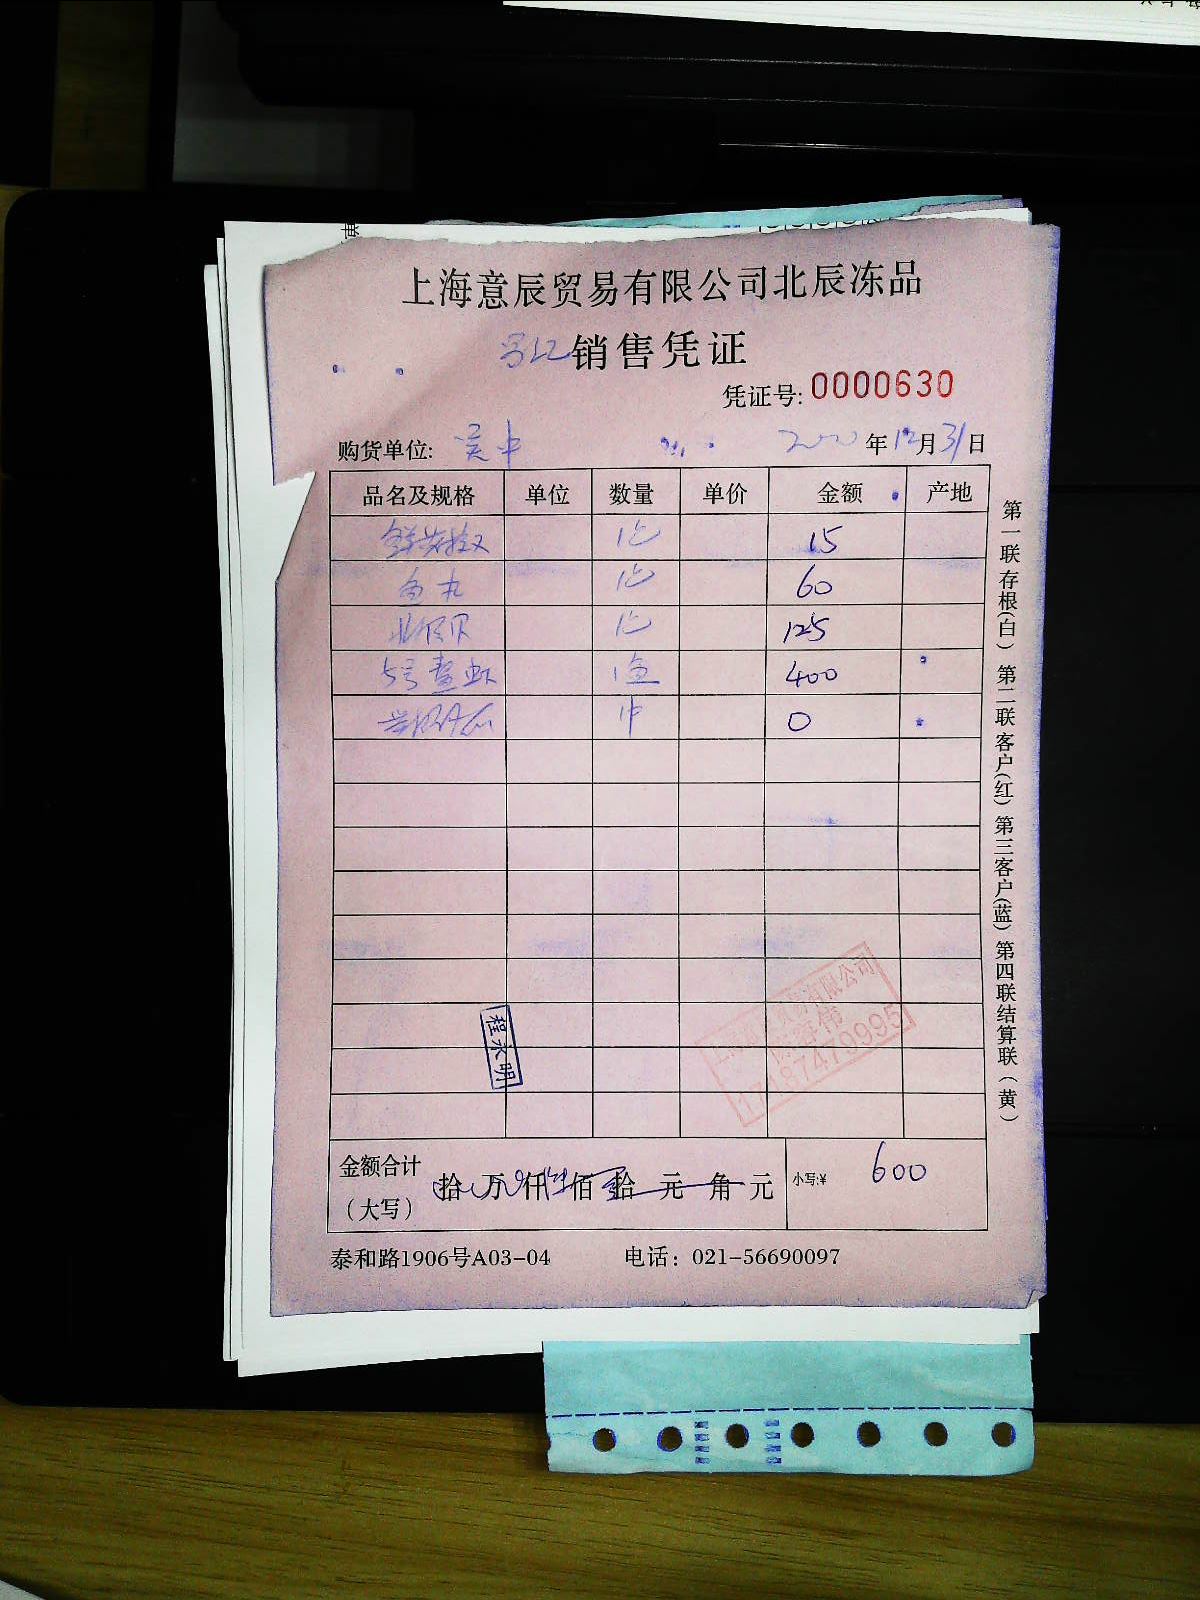 上海意辰贸易有限公司北辰冻品
销售凭证
凭证号: 0000630
购货单位: 吴中 2020年12月31日
品名及规格 单位 数量 单价 金额 产地
1包 15
鱼丸 1包 60
北极贝 1包 125
5号 虾 1盒 400
1件 0
程永明
贸易有限公司
17187479995
金额合计（大写） 拾 万 仟 佰 拾 元 角 元 小写:¥ 600
泰和路1906号A03-04 电话：021-56690097
第一联存根(白) 第二联客户(红) 第三客户(蓝) 第四联结算联（黄）